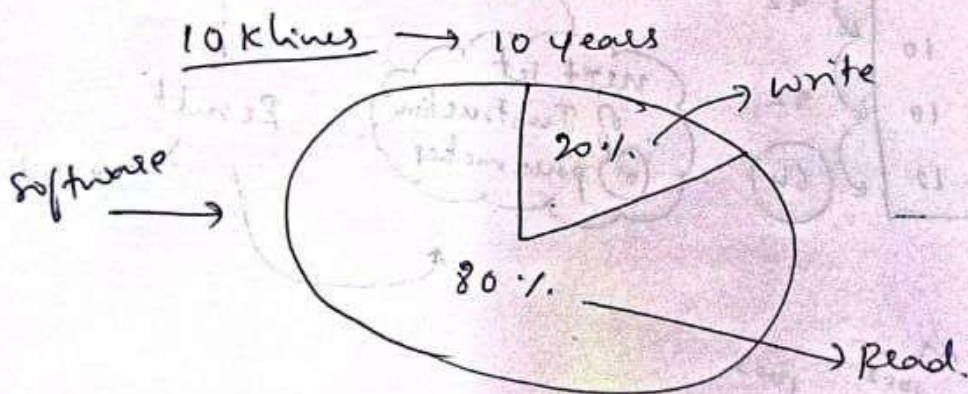 10 Klines → 10 years
write
20%
software
80%
Read.